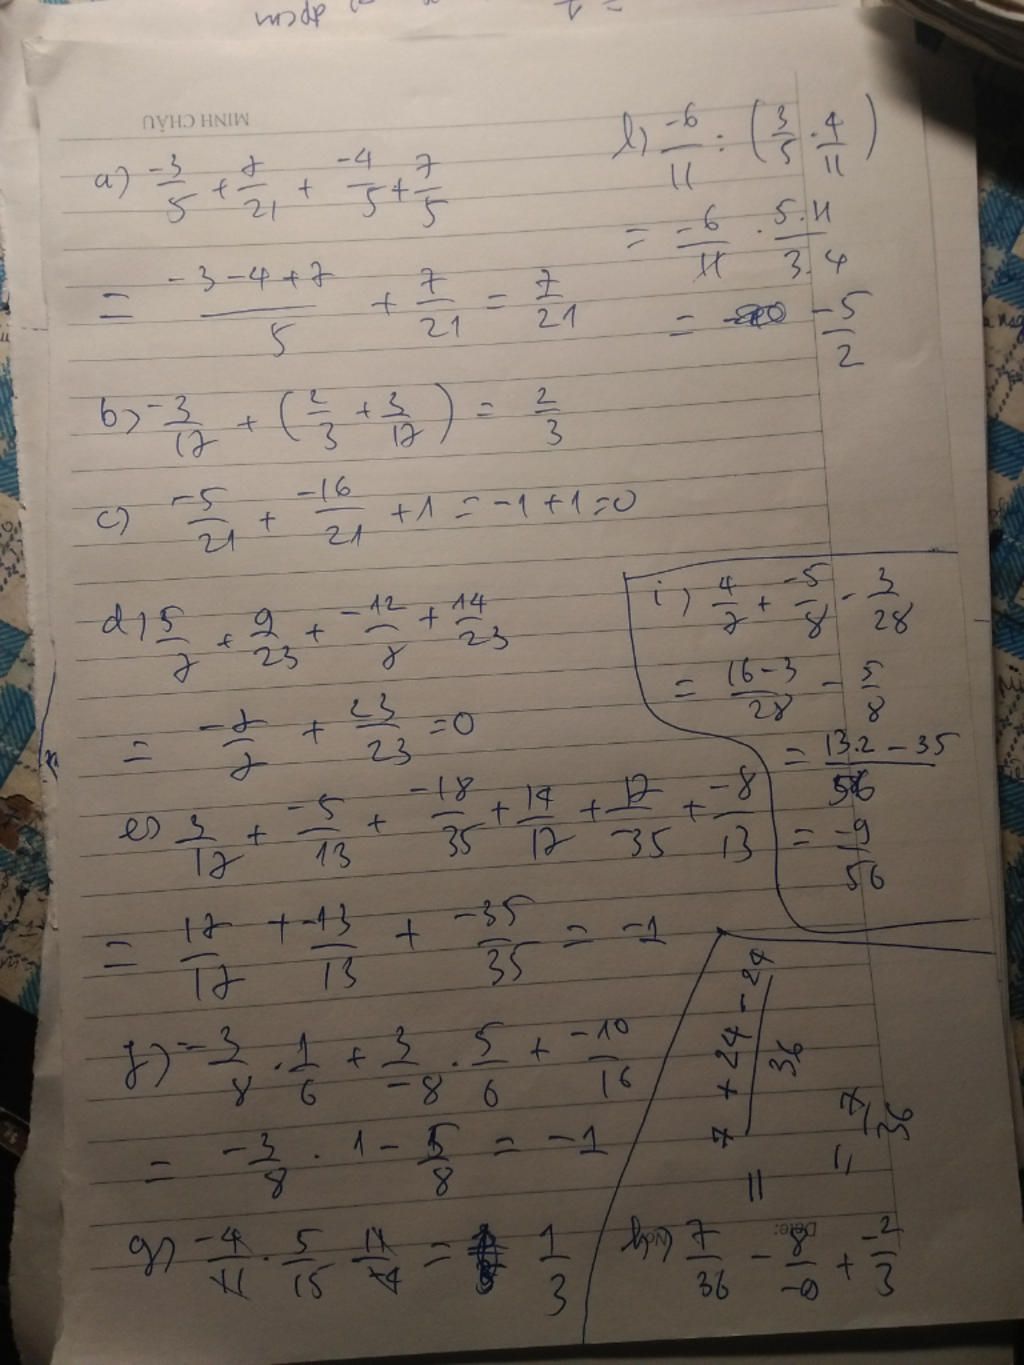 đpcm
MINH CHÂU
a) -3/5 + 7/21 + -4/5 + 7/5
= (-3-4+7)/5 + 7/21 = 7/21
b) -3/17 + (2/3 + 3/17) = 2/3
c) -5/21 + -16/21 + 1 = -1+1=0
d) 5/7 + 9/23 + -12/7 + 14/23
= -7/7 + 23/23 = 0
e) 3/17 + -5/13 + -18/35 + 14/17 + 17/-35 + -8/13
= 17/17 + -13/13 + -35/35 = -1
f) -3/8 . 1/6 + 3/-8 . 5/6 + -10/16
= -3/8 . 1 - 5/8 = -1
g) -4/11 . 5/15 . 11/-4 = 1/3
l) -6/11 : (3/5 . 4/11)
= -6/11 . 5.11/3.4
= -5/2
i) 4/7 + -5/8 - 3/28
= (16-3)/28 - 5/8
= (13.2 - 35)/56
= -9/56
h) 7/36 - 8/-9 + -2/3
= (7 + 24 - 24)/36
= 7/36
Date: